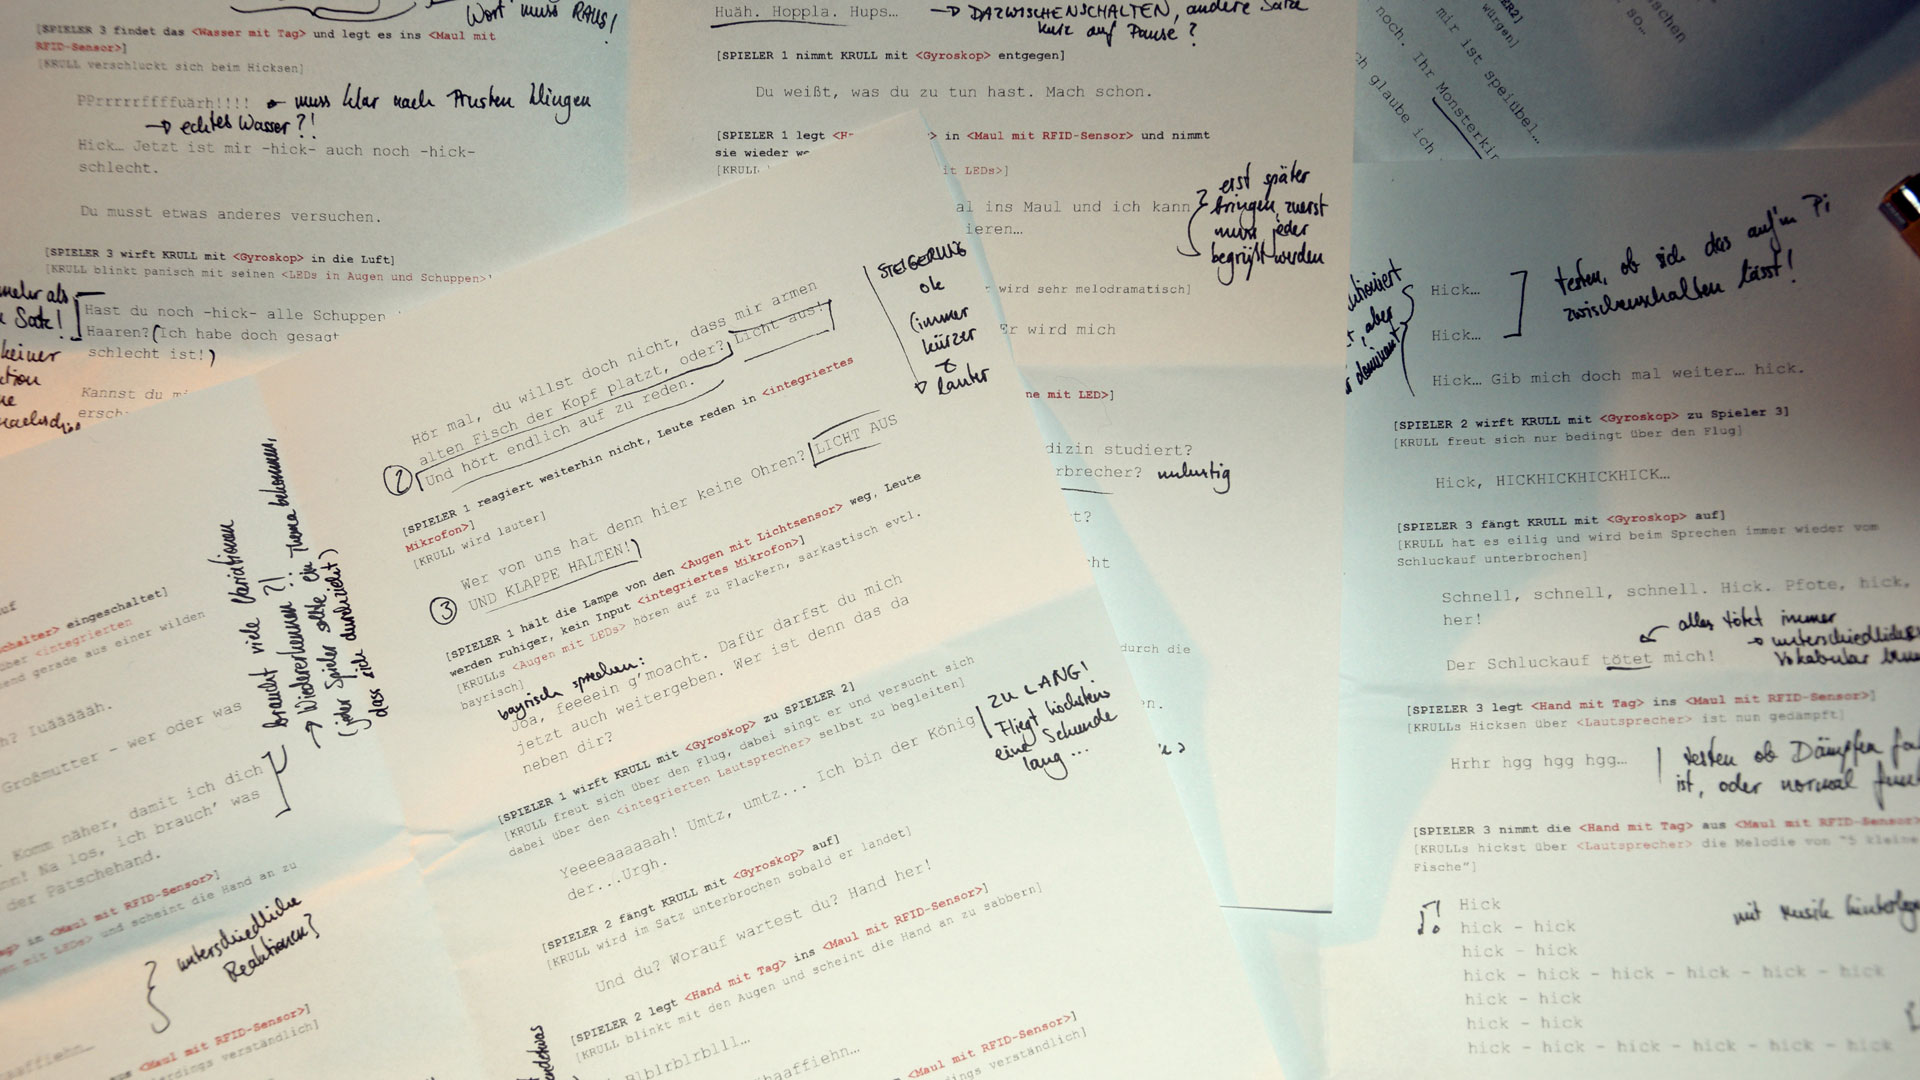 Wort muss RAUS!
[SPIELER 3 findet das <Wasser mit Tag> und legt es ins <Maul mit
RFID-Sensor>]
[KRULL verschluckt sich beim Hicksen]
PPrrrrrffffuärh!!!! ← muss klar nach Prusten klingen
→ echtes Wasser?!
Hick… Jetzt ist mir -hick- auch noch -hick-
schlecht.
Du musst etwas anderes versuchen.
[SPIELER 3 wirft KRULL mit <Gyroskop> in die Luft]
[KRULL blinkt panisch mit seinen <LEDs in Augen und Schuppen>
mehr als
Satz!
Hast du noch -hick- alle Schuppen
Haaren? (Ich habe doch gesagt
schlecht ist!)
keiner
Kannst du
Huäh. Hoppla. Hups… → DAZWISCHENSCHALTEN, andere Sätze
kurz auf Pause?
[SPIELER 1 nimmt KRULL mit <Gyroskop> entgegen]
Du weißt, was du zu tun hast. Mach schon.
[SPIELER 1 legt <H > in <Maul mit RFID-Sensor> und nimmt
sie wieder
[KRULL it LEDs>]
al ins Maul und ich kann
ieren…
erst später
bringen, zuerst
muss jeder
begrüßt werden
wird sehr melodramatisch]
Er wird mich
ne mit LED>]
dizin studiert?
rbrecher? unlustig
t?
ht
durch die
n.
noch. Ihr Monsterki
mir ist speiübel…
ch glaube ich
würgen]
so…
schen
Hör mal, du willst doch nicht, dass mir armen
alten Fisch der Kopf platzt, oder? Licht aus!
② Und hört endlich auf zu reden.
[SPIELER 1 reagiert weiterhin nicht, Leute reden in <integriertes
Mikrofon>]
[KRULL wird lauter]
Wer von uns hat denn hier keine Ohren? LICHT AUS
③ UND KLAPPE HALTEN!)
STEIGERUNG
ok
(immer
kürzer
&
lauter
[SPIELER 1 hält die Lampe von den <Augen mit Lichtsensor> weg, Leute
werden ruhiger, kein Input <integriertes Mikrofon>]
[KRULLs <Augen mit LEDs> hören auf zu Flackern, sarkastisch evtl.
bayrisch]
bayrisch sprechen:
Joa, feeein g'moacht. Dafür darfst du mich
jetzt auch weitergeben. Wer ist denn das da
neben dir?
[SPIELER 1 wirft KRULL mit <Gyroskop> zu SPIELER 2]
[KRULL freut sich über den Flug, dabei singt er und versucht sich
dabei über den <integrierten Lautsprecher> selbst zu begleiten]
Yeeeeaaaaaah! Umtz, umtz... Ich bin der König
der...Urgh.
ZU LANG!
Fliegt höchstens
eine Sekunde
lang…
[SPIELER 2 fängt KRULL mit <Gyroskop> auf]
[KRULL wird im Satz unterbrochen sobald er landet]
Und du? Worauf wartest du? Hand her!
[SPIELER 2 legt <Hand mit Tag> ins <Maul mit RFID-Sensor>]
[KRULL blinkt mit den Augen und scheint die Hand an zu sabbern]
Blblrblrblll…
haaffiehn…
<Maul mit RFID-Sensor>]
dings verständlich]
braucht viele Variationen
→ Wiedererkennen?! :: Thema bekommen,
(jeder Spieler sollte ein
dass sich durchzieht)
schalter> eingeschaltet]
über <integrierten
end gerade aus einer wilden
h? Iuäääääh.
Großmutter - wer oder was
Komm näher, damit ich dich
nn! Na los, ich brauch' was
der Patschehand.
in <Maul mit RFID-Sensor>]
mit LEDs> und scheint die Hand an zu
unterschiedliche
Reaktionen?
<Maul mit RFID-Sensor>]
lerdings verständlich]
Hick…
Hick…
testen, ob sich das auf'm Pi
zwischenschalten lässt!
Hick… Gib mich doch mal weiter… hick.
[SPIELER 2 wirft KRULL mit <Gyroskop> zu Spieler 3]
[KRULL freut sich nur bedingt über den Flug]
Hick, HICKHICKHICKHICK…
[SPIELER 3 fängt KRULL mit <Gyroskop> auf]
[KRULL hat es eilig und wird beim Sprechen immer wieder vom
Schluckauf unterbrochen]
Schnell, schnell, schnell. Hick. Pfote, hick,
her!
alles tötet immer
→ unterschiedliches
Vokabular
Der Schluckauf tötet mich!
[SPIELER 3 legt <Hand mit Tag> ins <Maul mit RFID-Sensor>]
[KRULLs Hicksen über <Lautsprecher> ist nun gedämpft]
Hrhr hgg hgg hgg…
testen ob Dämpfen
ist, oder normal
[SPIELER 3 nimmt die <Hand mit Tag> aus <Maul mit RFID-Sensor>
[KRULLs hickst über <Lautsprecher> die Melodie von "5 kleine
Fische"]
Hick
hick - hick
hick - hick
hick - hick - hick - hick - hick - hick
hick - hick
hick - hick
hick - hick - hick - hick - hick - hick
mit Musik